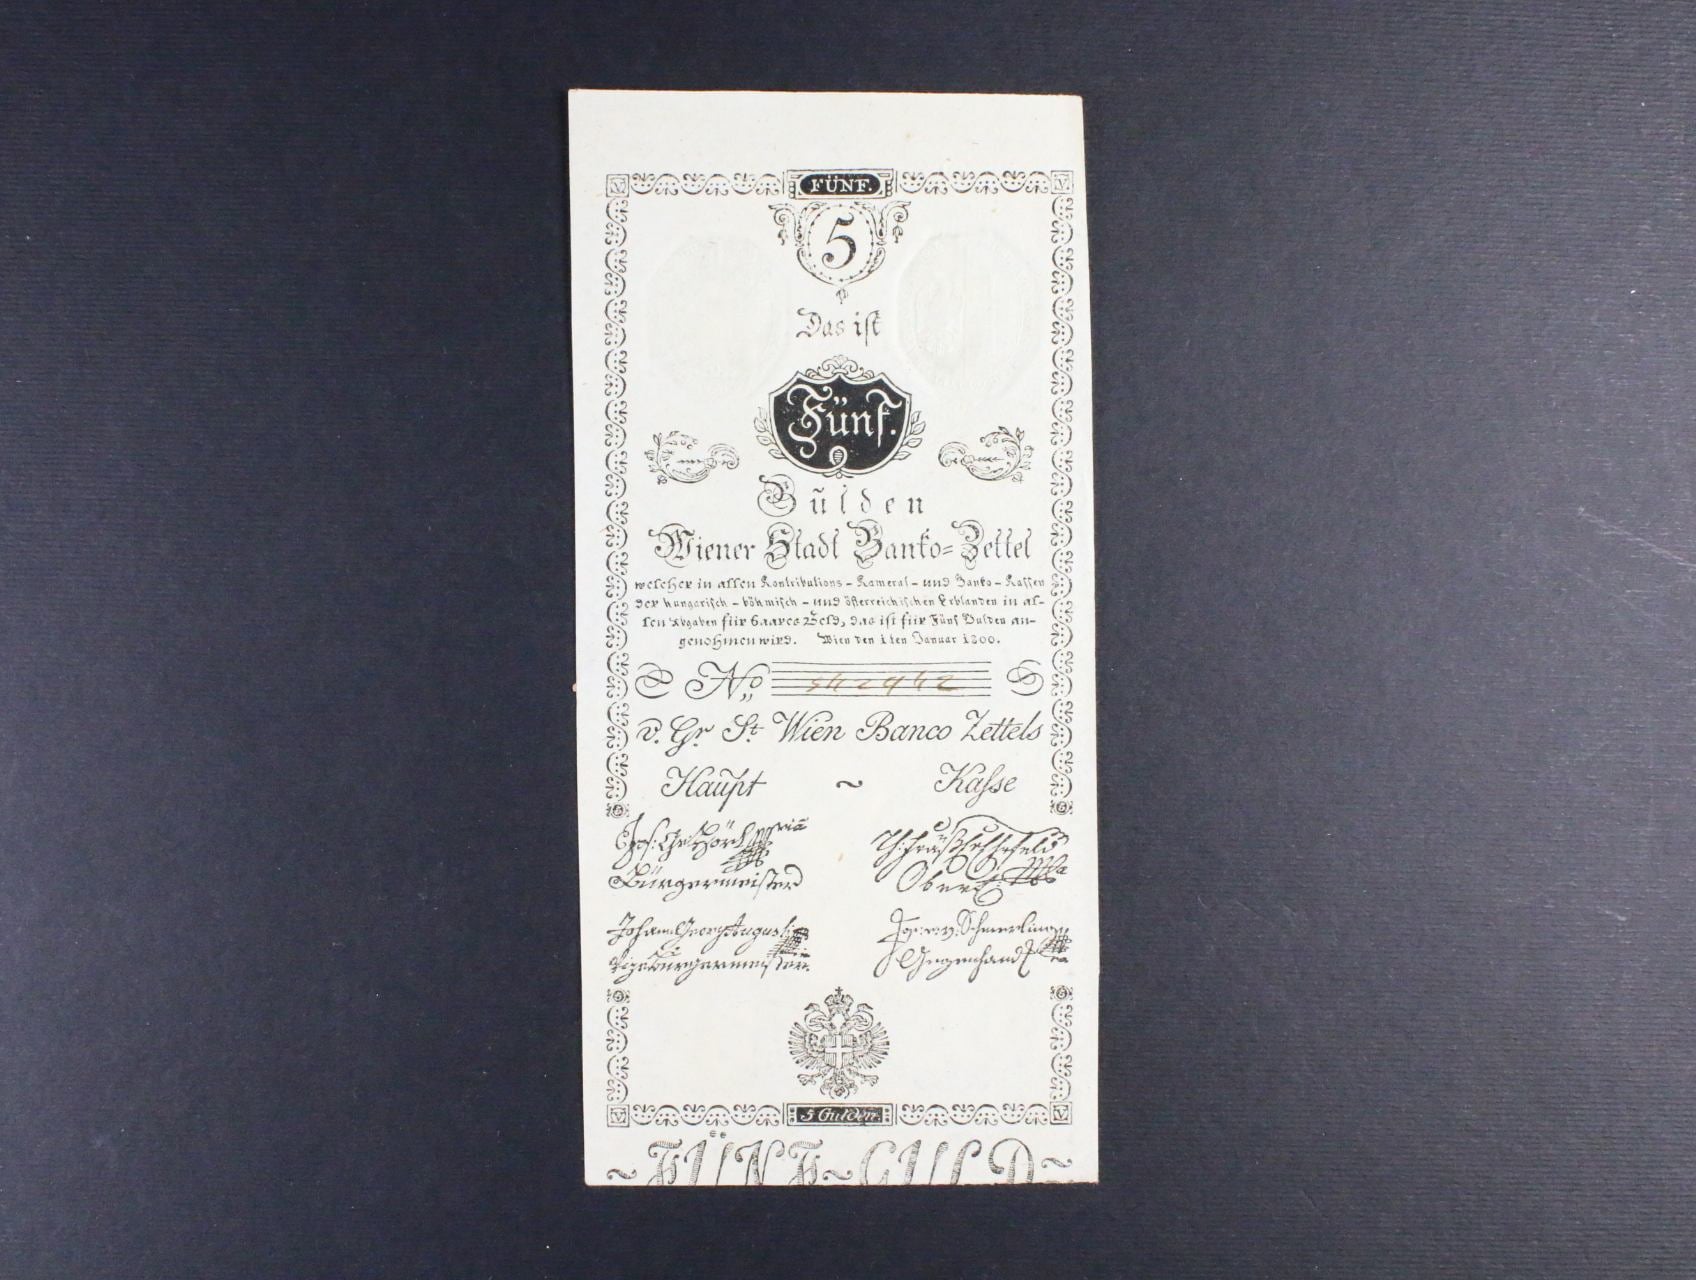 V FÜNF. V
5
Das ist
Fünf.
Gulden
Wiener Stadt Banko-Zettel
welcher in allen Kontributions- Kameral- und Banko-Kassen
der hungarisch-böhmisch-und österreichischen Erblanden in al-
len Abgaben für baares Geld, das ist für Fünf Gulden an-
genohmen wird. Wien den 1ten Januar 1800.
No
v. Gr St. Wien Banco Zettels
Haupt ~ Kasse
Bürgermeister
Johann Georg Augusti
Vizebürgermeister
Schmerling
Gegenhand
V 5 Gulden. V
~FÜNF~GULD~